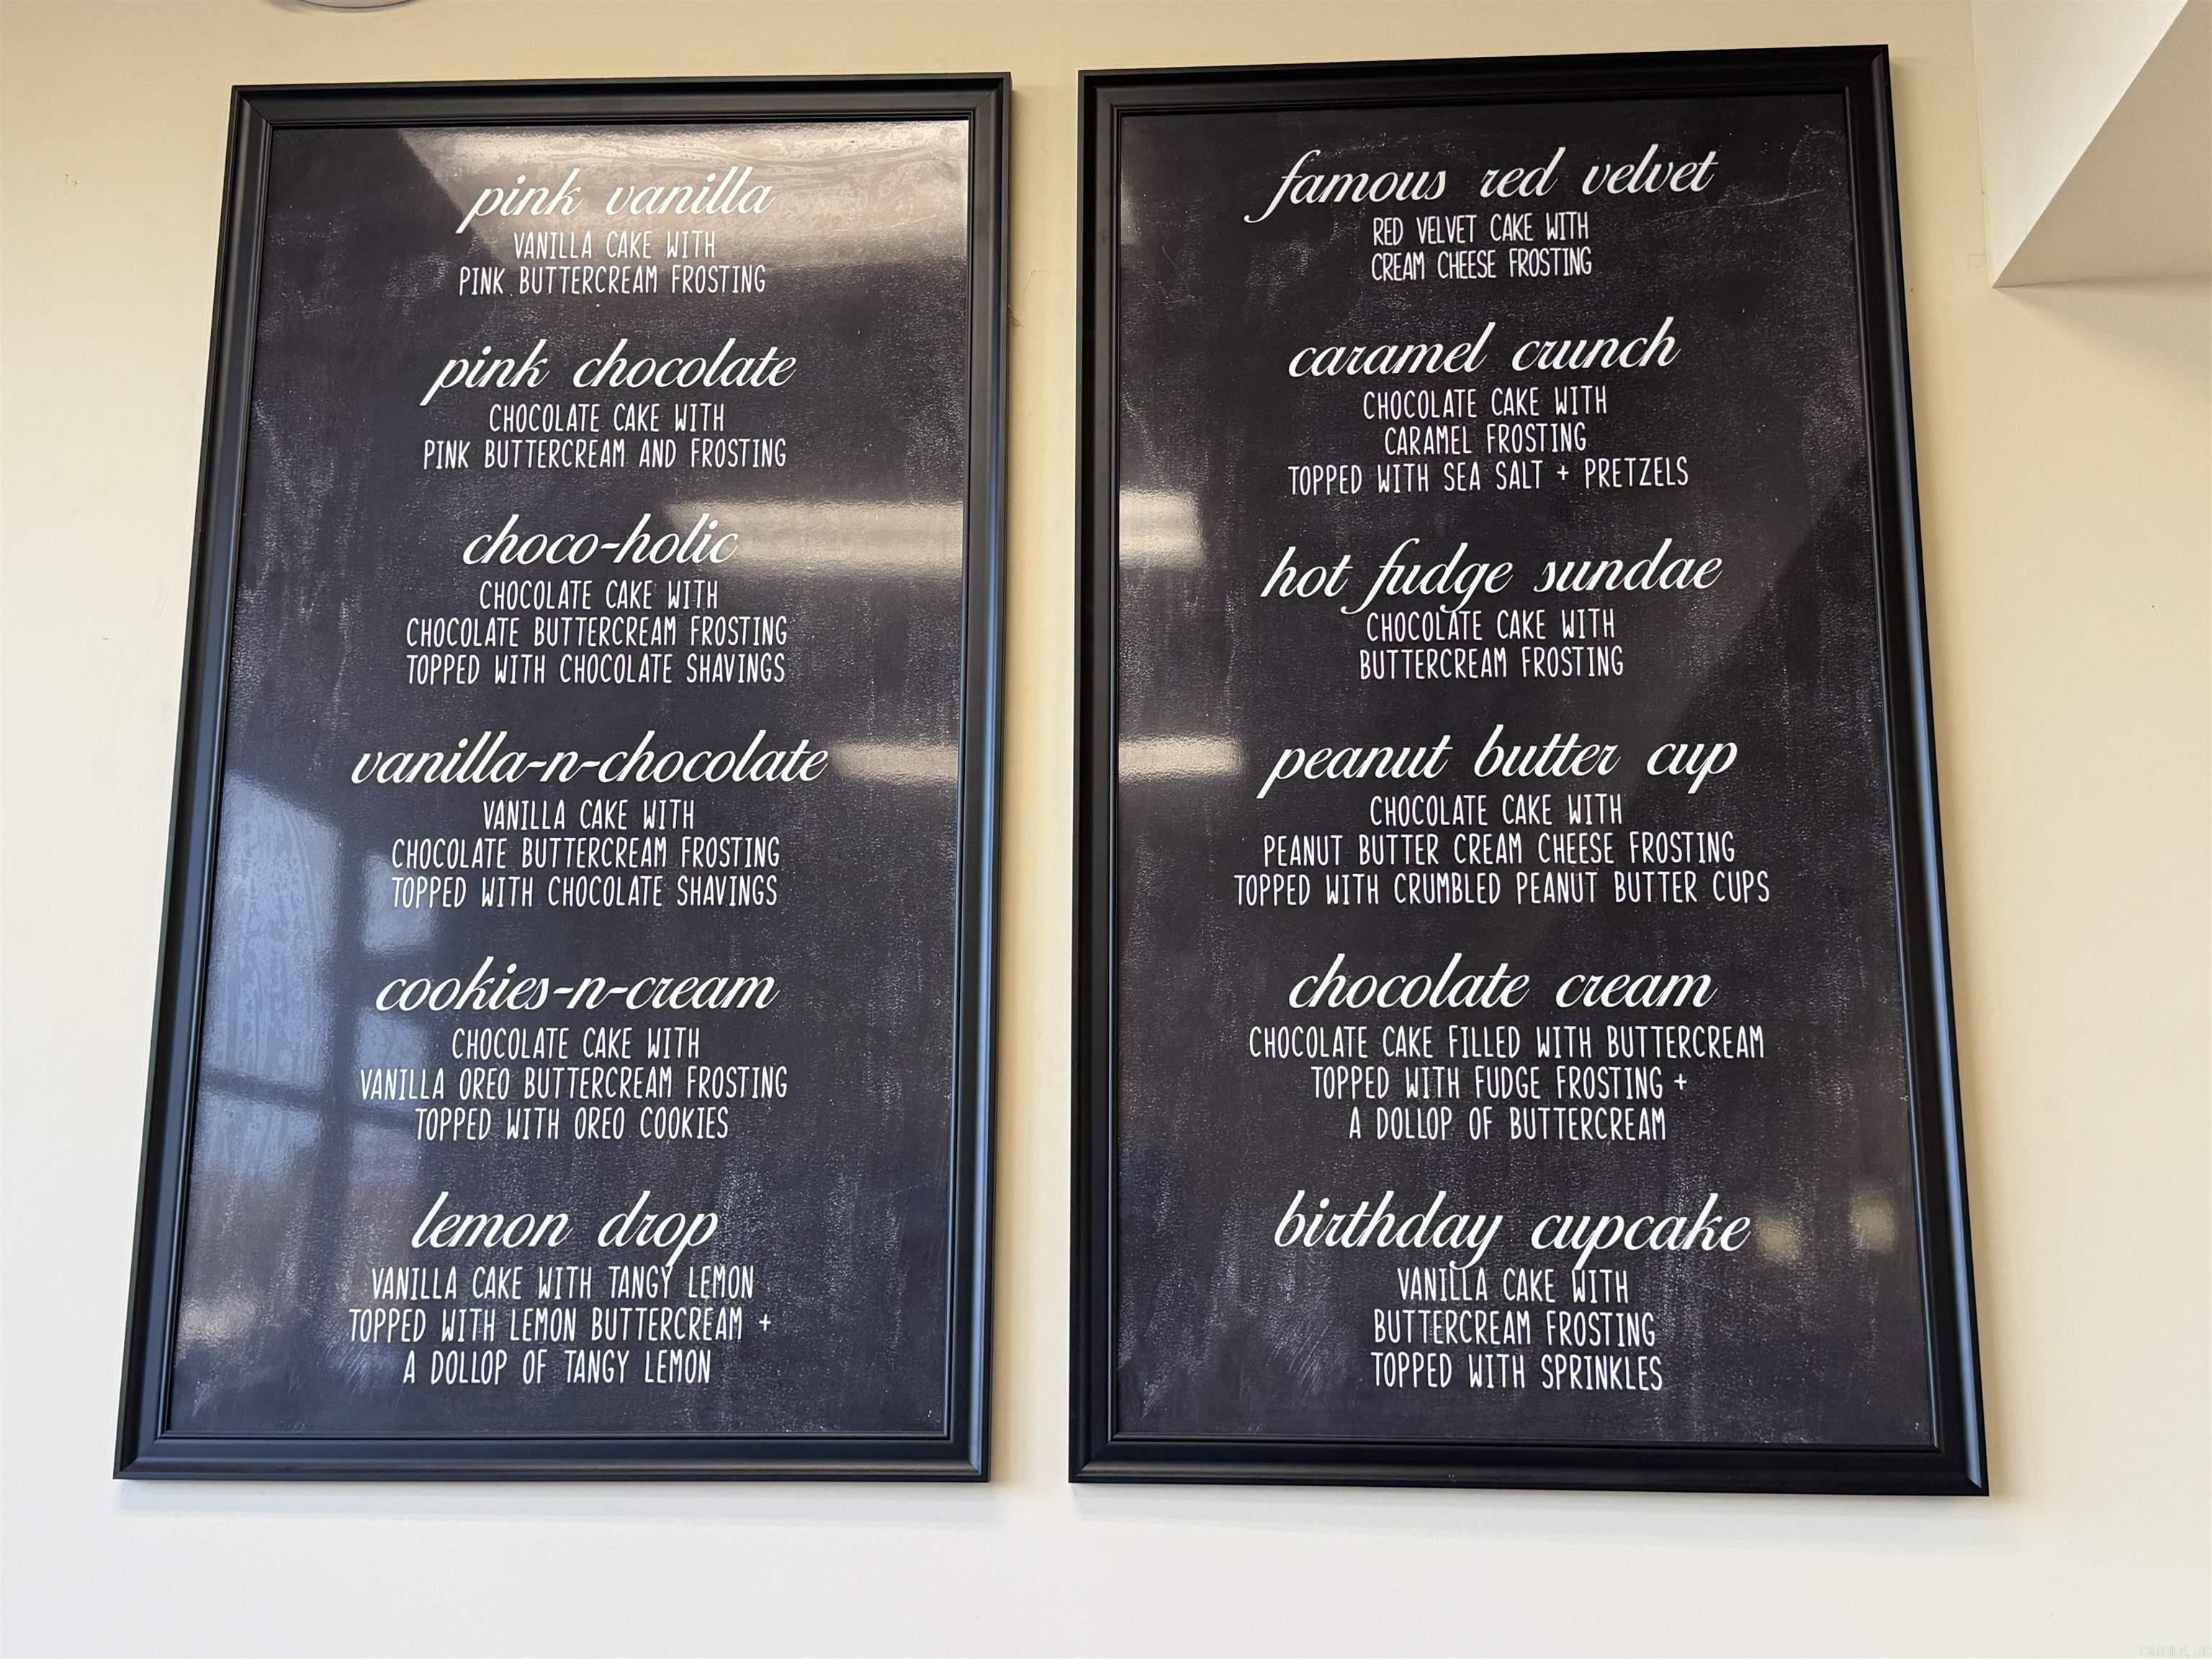 pink vanilla
VANILLA CAKE WITH
PINK BUTTERCREAM FROSTING
pink chocolate
CHOCOLATE CAKE WITH
PINK BUTTERCREAM AND FROSTING
choco-holic
CHOCOLATE CAKE WITH
CHOCOLATE BUTTERCREAM FROSTING
TOPPED WITH CHOCOLATE SHAVINGS
vanilla-n-chocolate
VANILLA CAKE WITH
CHOCOLATE BUTTERCREAM FROSTING
TOPPED WITH CHOCOLATE SHAVINGS
cookies-n-cream
CHOCOLATE CAKE WITH
VANILLA OREO BUTTERCREAM FROSTING
TOPPED WITH OREO COOKIES
lemon drop
VANILLA CAKE WITH TANGY LEMON
TOPPED WITH LEMON BUTTERCREAM +
A DOLLOP OF TANGY LEMON
famous red velvet
RED VELVET CAKE WITH
CREAM CHEESE FROSTING
caramel crunch
CHOCOLATE CAKE WITH
CARAMEL FROSTING
TOPPED WITH SEA SALT + PRETZELS
hot fudge sundae
CHOCOLATE CAKE WITH
BUTTERCREAM FROSTING
peanut butter cup
CHOCOLATE CAKE WITH
PEANUT BUTTER CREAM CHEESE FROSTING
TOPPED WITH CRUMBLED PEANUT BUTTER CUPS
chocolate cream
CHOCOLATE CAKE FILLED WITH BUTTERCREAM
TOPPED WITH FUDGE FROSTING +
A DOLLOP OF BUTTERCREAM
birthday cupcake
VANILLA CAKE WITH
BUTTERCREAM FROSTING
TOPPED WITH SPRINKLES